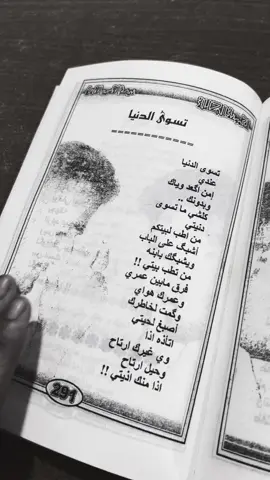 تسوى الدنيا
تسوى الدنيا
عندي
من اگعد وياك
وبدونك ..
كلشي ما تسوى
دنيتي
من اطب لبيتكم
أشبگ على الباب
ويشبگك بابنه
من تطب بيتي !!
فرق مابين عمري
وعمرك هواي
وگمت لخاطرك
أصبغ لحيتي
اتأذه اذا
وي غيرك ارتاح
وحيل ارتاح
اذا منك اذيتي !!
291